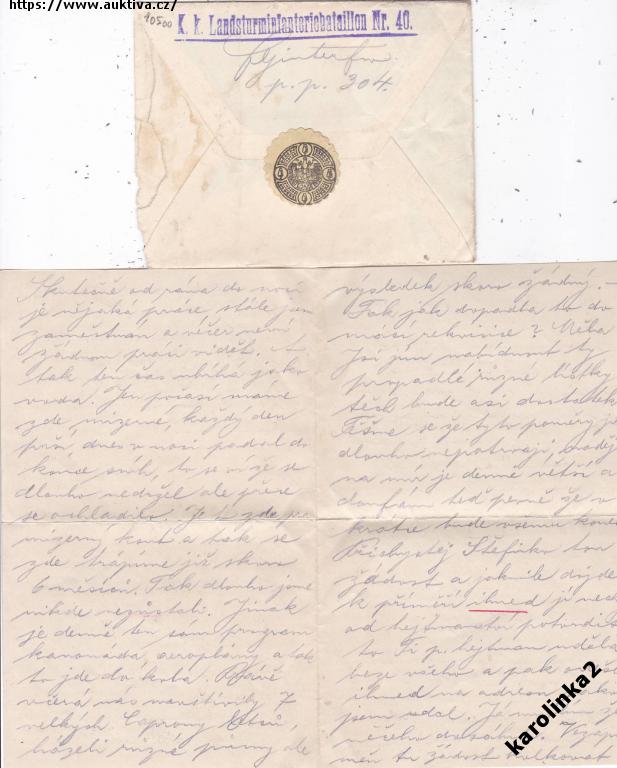 https://www.auktiva.cz/
40500
K. k. Landsturminfanteriebataillon Nr. 40.
p. p. 304.
Skutečně od rána do noci
je nějaká práce, stále jsem
zaměstnán a večer není
žádnou práci viděti.
tak ten čas ubíhá jako
voda. Jen počasí máme
zde mizerné, každý den
prší, dnes v noci padal do
konce sníh, to se ví že se
dlouho nedržel ale přece
se ochladilo. Je to zde
mizerný kout a tak se
zde trápíme již skoro
6 měsíců. Tak dlouho jsme
nikde nezůstali. Jinak
je denně ten samý program
kanonáda, aeroplány a tak
to jde do kola. Právě
včera nás navštívily 7
velkých Caprony
házeli různé pumy ale
výsledek skoro žádný. —
Tak jak dopadla to do
mácí rekvisice?
ty
propadlé různé lístky
těch bude asi dostatek
Těšme se že tyto poměry již
dlouho nepotrvají, naděj
na mír je denně větší a
doufám teď pevně že v
krátce bude všemu konec
Přichystej Štefinko tou
žádost a jakmile dojde
k příměří ihned ji nech
od hejtmanství potvrdit
to Ti p. hejtman udělá
beze všeho a pak
ihned na adresu
jsem udal.
něčeho
žádost kolkovat
karolinka2